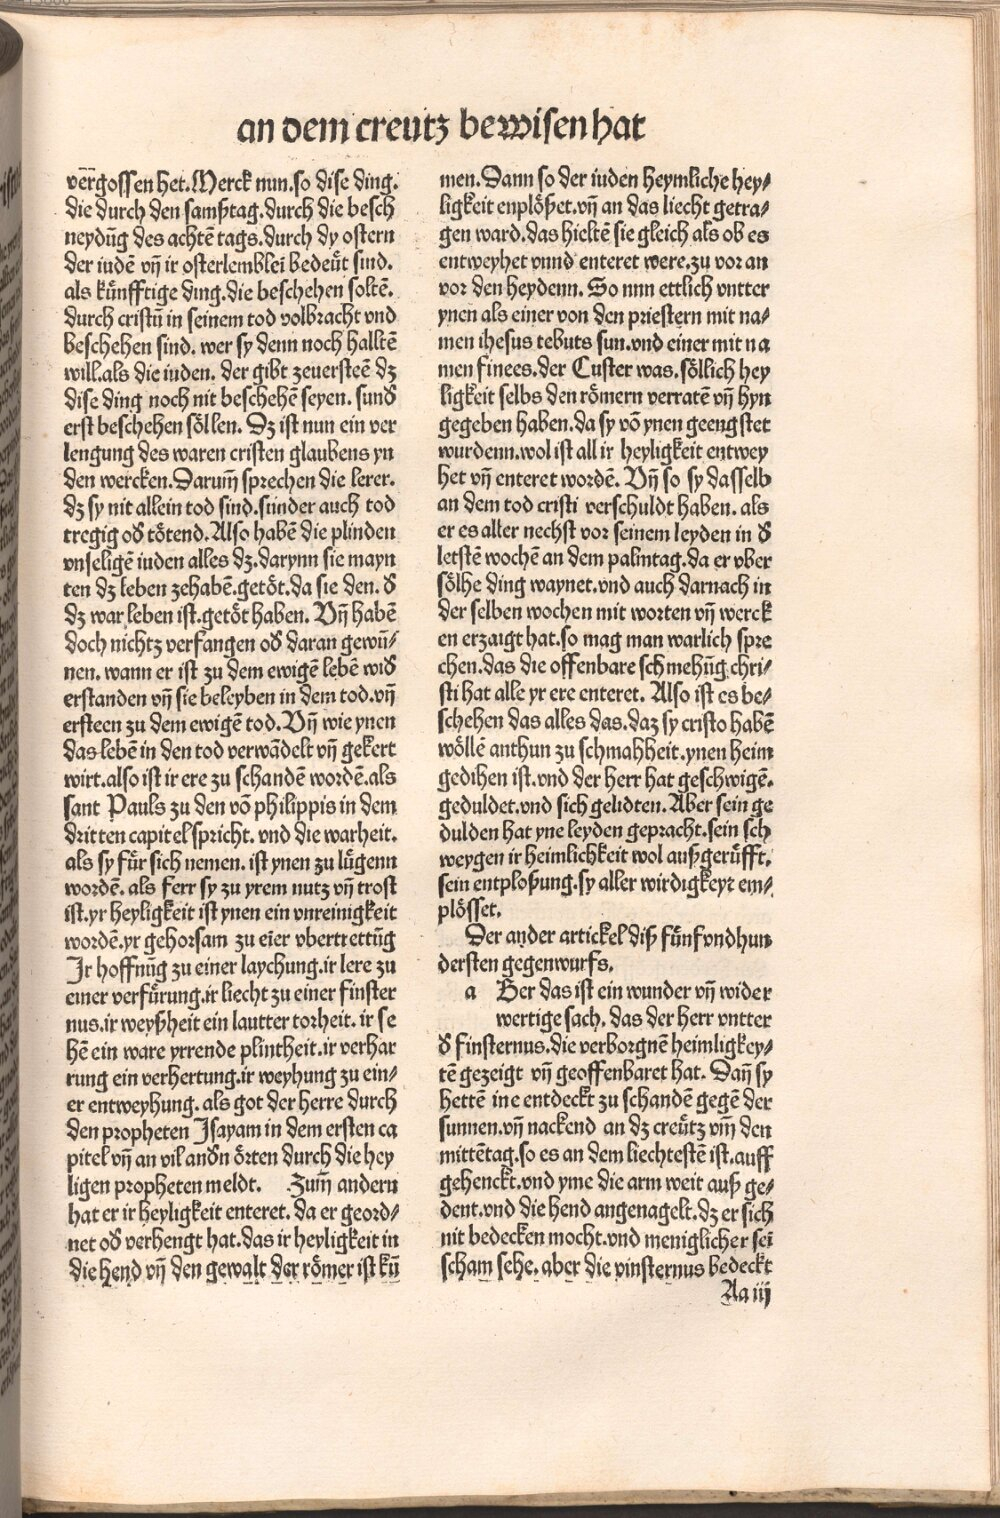 an dem creutz bewisen hat
vergossen het. Merck nun. so dise ding.
die durch den samßtag. durch die besch
neydūg des achtē tags. durch dy ostern
der iudē vn̄ ir osterlemblei bedeüt sind.
als künfftige ding. die beschehen soltē.
durch cristū in seinem tod volbracht vnd
beschehen sind. wer sy denn noch halltē
will. als die iuden. der gibt zeuersteē dz
dise ding noch nit beschehē seyen. sund̛
erst beschehen söllen. Dz ist nun ein ver
lengung des waren cristen glaubens yn
den wercken. Darum̄ sprechen die lerer.
dz sy nit allein tod sind. sunder auch tod
tregig od̛ tötend. Also habē die plinden
vnseligē iuden alles dz. darynn sie mayn
ten dz leben zehabē. getöt. da sie den. d̛
dz war leben ist. getöt haben. Vn̄ habē
doch nichtz verfangen od̛ daran gewū⸗
nen. wann er ist zu dem ewigē lebē wid̛
erstanden vn̄ sie beleyben in dem tod. vn̄
ersteen zu dem ewigē tod. Vn̄ wie ynen
das lebē in den tod verwādelt vn̄ gekert
wirt. also ist ir ere zu schandē wordē. als
sant Pauls zu den vō philippis in dem
dritten capitel spricht. vnd die warheit.
als sy für sich nemen. ist ynen zu lügenn
wordē. als ferr sy zu yrem nutz vn̄ trost
ist. yr heyligkeit ist ynen ein vnreinigkeit
wordē. yr gehorsam zu eīer vbertrettūg
Ir hoffnūg zu einer laychung. ir lere zu
einer verfürung. ir liecht zu einer finster
nus. ir weyßheit ein lautter torheit. ir se
hē ein ware yrrende plintheit. ir verhar
rung ein verhertung. ir weyhung zu ein⸗
er entweyhung. als got der herre durch
den propheten Isayam in dem ersten ca
pitel vn̄ an vil and̛n örten durch die hey
ligen propheten meldt. Zum̄ andern
hat er ir heyligkeit enteret. da er geord⸗
net od̛ verhengt hat. das ir heyligkeit in
die hend vn̄ den gewalt der römer ist kū
men. Dann so der iuden heymliche hey⸗
ligkeit enplößet. vn̄ an das liecht getra⸗
gen ward. das hieltē sie gleich als ob es
entweyhet vnnd enteret were. zu vor an
vor den heydenn. So nun ettlich vntter
ynen als einer von den priestern mit na⸗
men ihesus tebuts sun. vnd einer mit na
men finees. der Custer was. söllich hey
ligkeit selbs den römern verratē vn̄ hyn
gegeben haben. da sy vō ynen geengstet
wurdenn. wol ist all ir heyligkeit entwey
het vn̄ enteret wordē. Vn̄ so sy dasselb
an dem tod cristi verschuldt haben. als
er es aller nechst vor seinem leyden in d̛
letstē wochē an dem palmtag. da er vber
sölhe ding waynet. vnd auch darnach in
der selben wochen mit worten vn̄ werck
en erzaigt hat. so mag man warlich spre
chen. das die offenbare schmehūg chri⸗
sti hat alle yr ere enteret. Also ist es be⸗
schehen das alles das. daz sy cristo habē
wöllē anthun zu schmahheit. ynen heim
gedihen ist. vnd der herr hat geschwigē.
geduldet. vnd sich gelidten. Aber sein ge
dulden hat yne leyden gepracht. sein sch
weygen ir heimlichkeit wol außgerüfft.
sein entploßung. sy aller wirdigkeyt em⸗
plösset.
Der ander artickel diß fünfvndhun
dersten gegenwurfs.
a Ber das ist ein wunder vn̄ wider
wertige sach. das der herr vntter
d̛ finsternus. die verborgnē heimligkey⸗
tē gezeigt vn̄ geoffenbaret hat. Dan̄ sy
hettē ine entdeckt zu schandē gegē der
sunnen. vn̄ nackend an dz creütz vm̄ den
mittētag. so es an dem liechtestē ist. auff
gehenckt. vnd yme die arm weit auß ge⸗
dent. vnd die hend angenagelt. dz er sich
nit bedecken mocht. vnd meniglicher sei
scham sehe. aber die vinsternus bedeckt
Aa iij